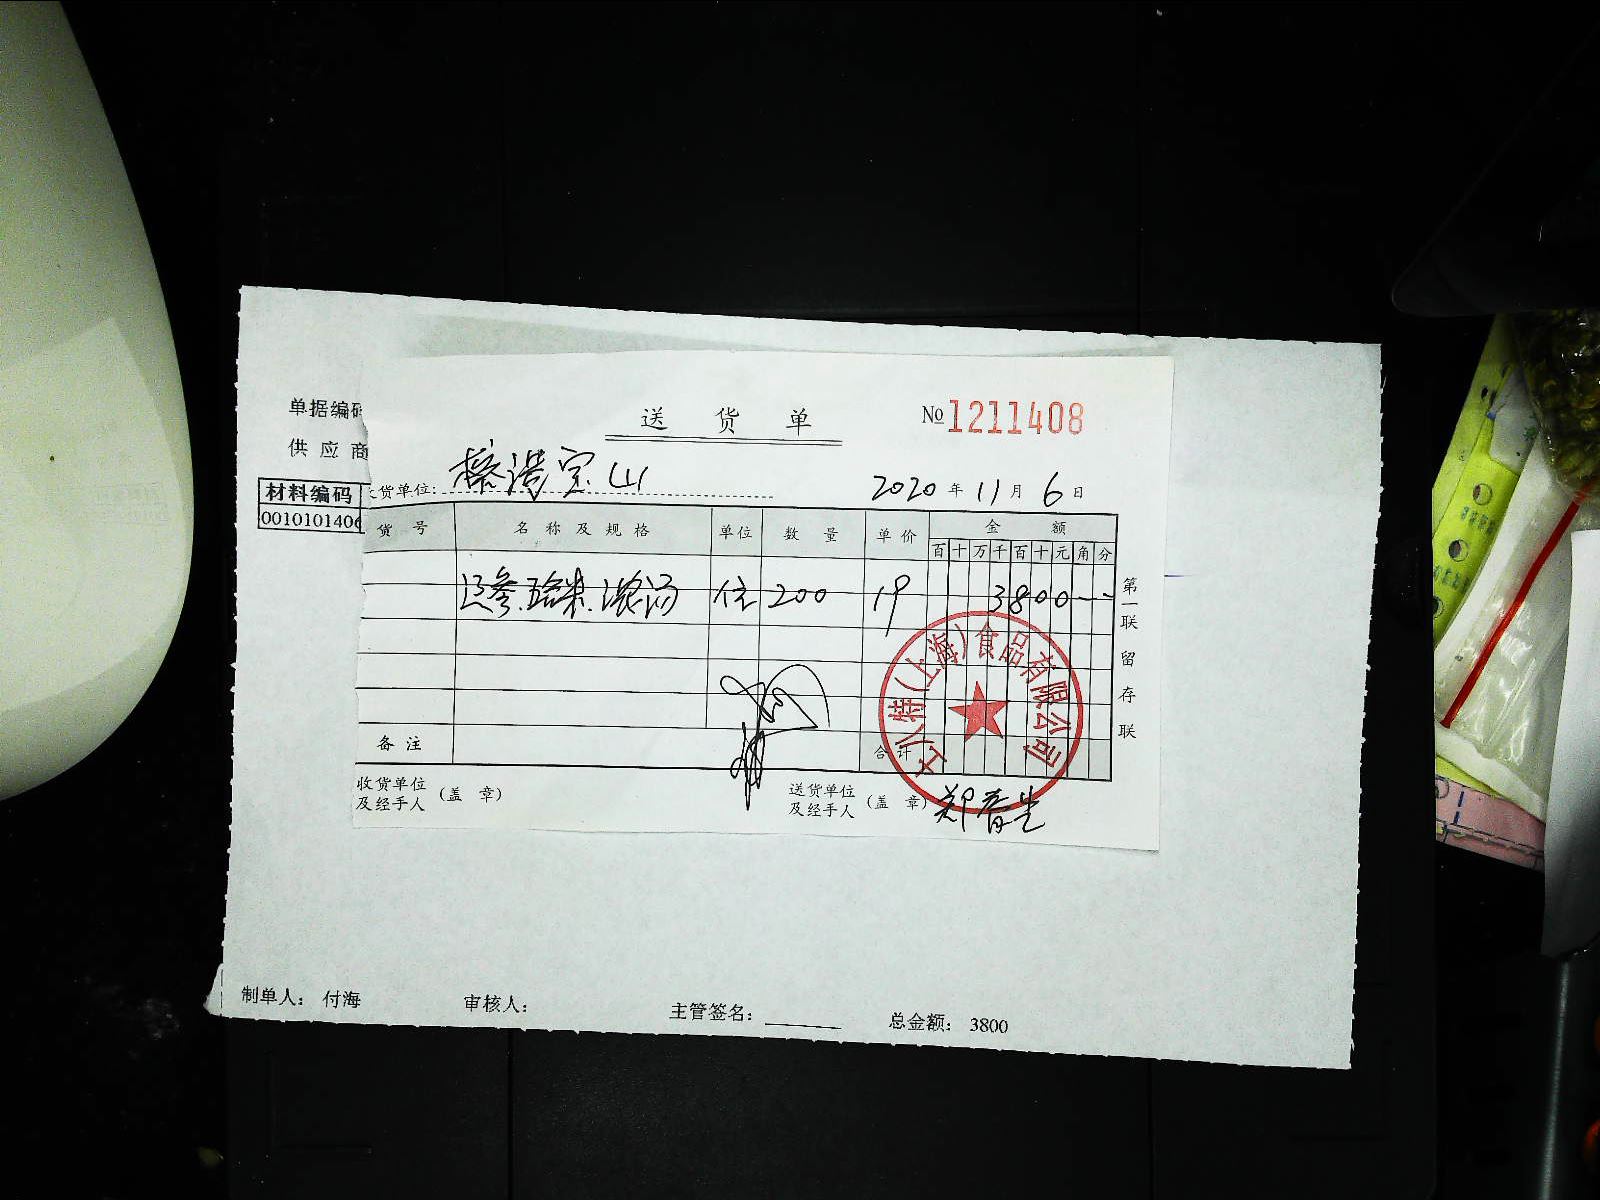 单据编码
供 应 商
材料编码
001010140
送 货 单
№1211408
货单位: 榕港宝山
2020 年 11 月 6 日
货 号 名 称 及 规 格 单位 数 量 单 价 金 额
百 十 万 千 百 十 元 角 分
辽参. 小米. 浓汤 位 200 19 3800--
备 注 合 计
第一联 留存联
收货单位及经手人 (盖 章)
送货单位及经手人 (盖 章) 郑春生
(上海)食品有限公司
制单人: 付海 审核人: 主管签名: 总金额: 3800